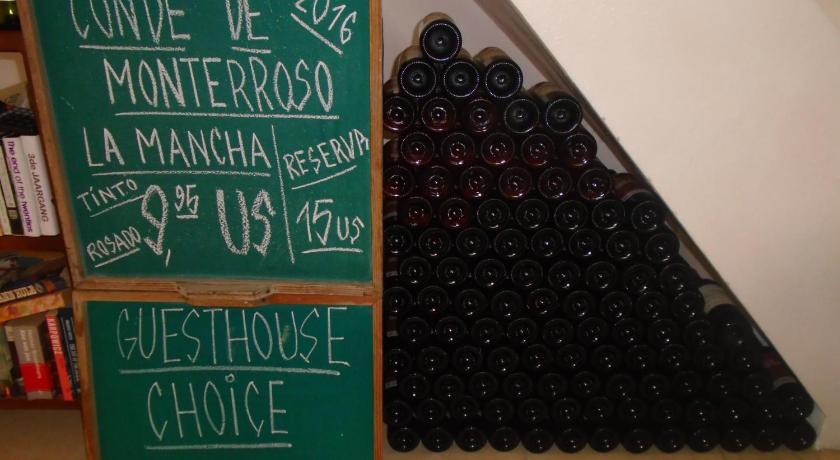 CONDE DE 2016
MONTERROSO
LA MANCHA
RESERVA
TINTO
ROSADO
9,95 US
15US
GUESTHOUSE
CHOICE
the end of the nineties
3de JAARGANG